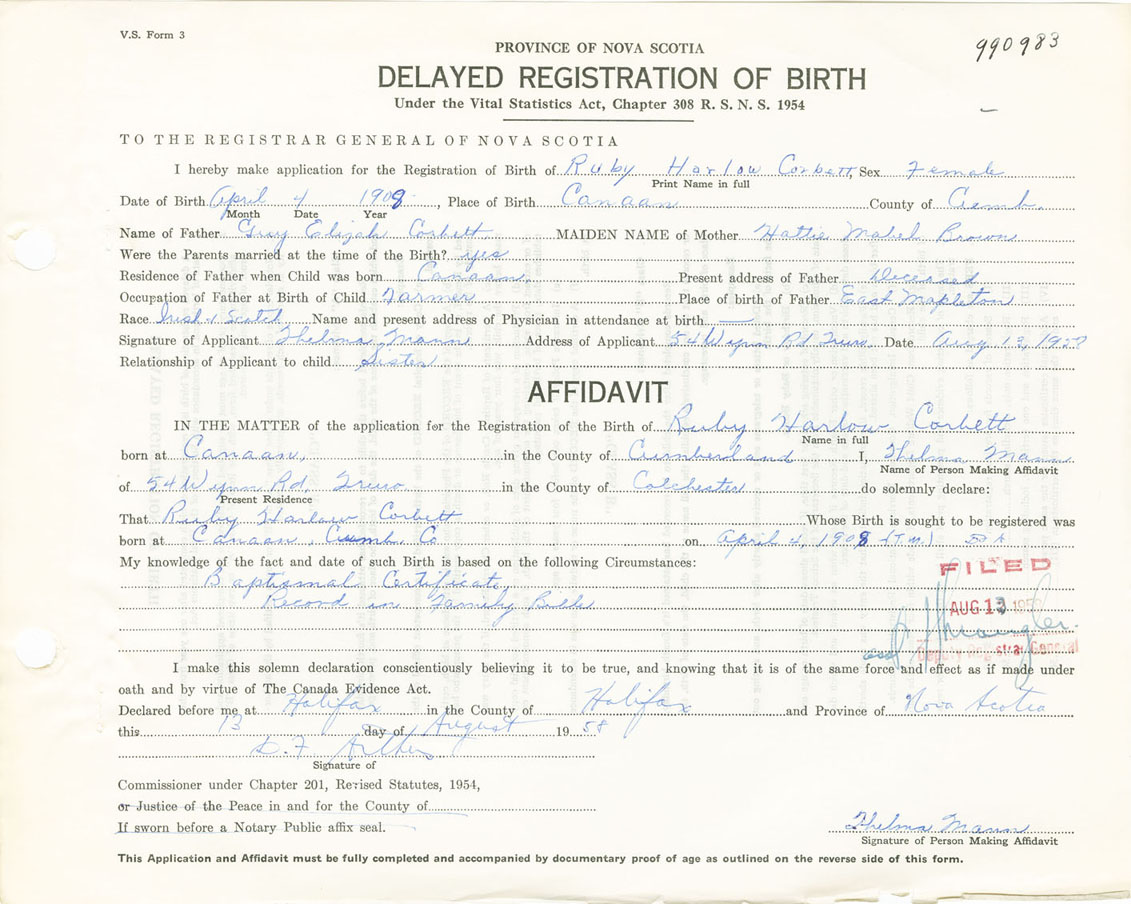 V.S. Form 3
990983
PROVINCE OF NOVA SCOTIA
DELAYED REGISTRATION OF BIRTH
Under the Vital Statistics Act, Chapter 308 R. S. N. S. 1954
TO THE REGISTRAR GENERAL OF NOVA SCOTIA
I hereby make application for the Registration of Birth of Ruby Harlow Corbett, Sex Female
Print Name in full
Date of Birth April 4 1908, Place of Birth Canaan County of Cumb.
Month Date Year
Name of Father Guy Elizah Corbett MAIDEN NAME of Mother Hattie Mabel Brown
Were the Parents married at the time of the Birth? yes
Residence of Father when Child was born Canaan, Present address of Father Deceased
Occupation of Father at Birth of Child Farmer Place of birth of Father East Mapleton
Race Irish & Scotch Name and present address of Physician in attendance at birth —
Signature of Applicant Thelma Mann Address of Applicant 54 Wynn Rd Truro. Date Aug 12, 195
Relationship of Applicant to child Sister
AFFIDAVIT
IN THE MATTER of the application for the Registration of the Birth of Ruby Harlow Corbett
Name in full
born at Canaan, in the County of Cumberland I, Thelma Mann
Name of Person Making Affidavit
of 54 Wynn Rd, Truro in the County of Colchester do solemnly declare:
Present Residence
That Ruby Harlow Corbett Whose Birth is sought to be registered was
born at Canaan, Cumb. Co on April 4, 1908 (T.M.)
My knowledge of the fact and date of such Birth is based on the following Circumstances:
Baptismal Certificate,
Record in Family Bible
FILED
AUG 13 195
Deputy Registrar General
I make this solemn declaration conscientiously believing it to be true, and knowing that it is of the same force and effect as if made under
oath and by virtue of The Canada Evidence Act.
Declared before me at Halifax in the County of Halifax and Province of Nova Scotia
this 13 day of August 19 58
D. F.
Signature of
Commissioner under Chapter 201, Revised Statutes, 1954,
or Justice of the Peace in and for the County of
If sworn before a Notary Public affix seal.
Thelma Mann
Signature of Person Making Affidavit
This Application and Affidavit must be fully completed and accompanied by documentary proof of age as outlined on the reverse side of this form.